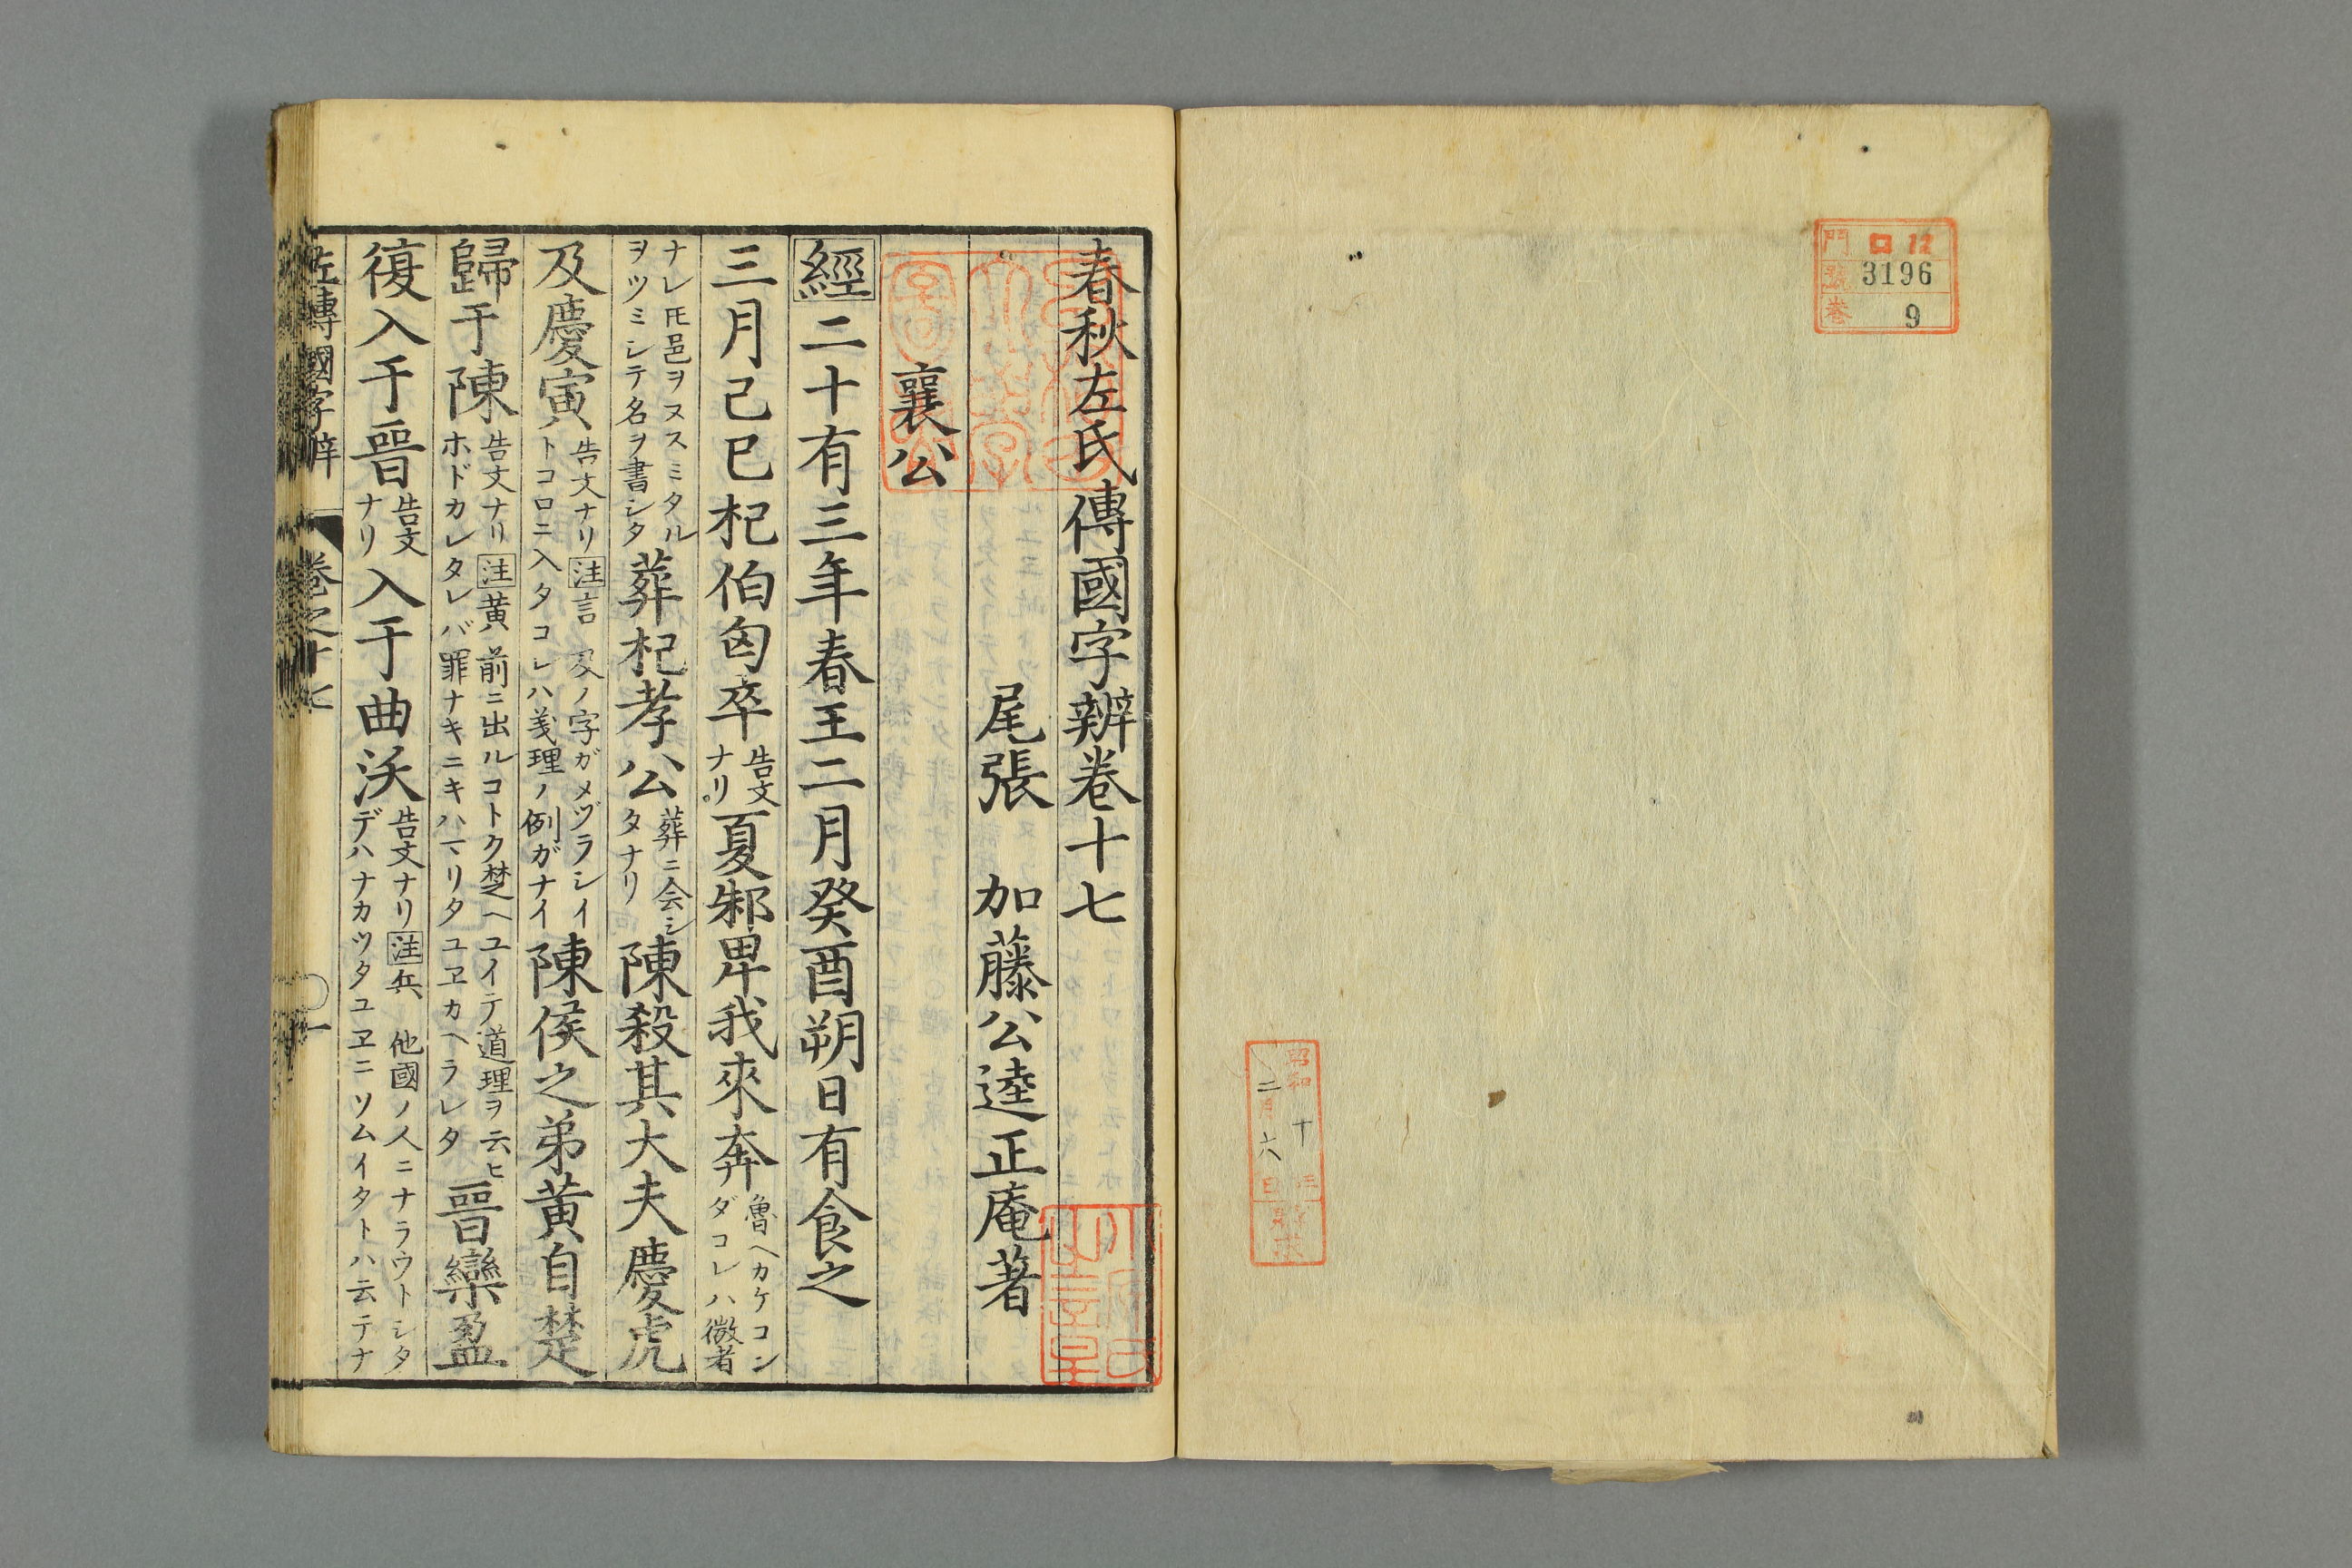 門 ロ 12
號 3196
卷 9
昭和 十 年
二月 六 日
春秋左氏傳國字辨卷十七
尾張 加藤公逵正庵著
襄公
經二十有三年春王二月癸酉朔日有食之
三月己巳杞伯匄卒 告文ナリ。 夏邾畀我來奔 魯ヘカケコンダコレハ微者
ナレ𪜈邑ヲヌスミタルヲツミシテ名ヲ書シタ 葬杞孝公 葬ニ会シタナリ 陳殺其大夫慶虎
及慶寅 告文ナリ 注 言 及ノ字ガメヅラシイトコロニ入タコレハ義理ノ例ガナイ 陳侯之弟黃自楚
歸于陳 告文ナリ 注 黄 前ニ出ルコトク楚ヘユイテ道理ヲ云ヒホドカレタレバ罪ナキニキハマリタユヱカヘラレタ 晉欒盈
復入于晉 告文ナリ 入于曲沃 告文ナリ 注 兵 他國ノ人ニナラウトシタデハナカツタユヱニソムイタトハ云テナ
左傳國字辨 卷之十七 一